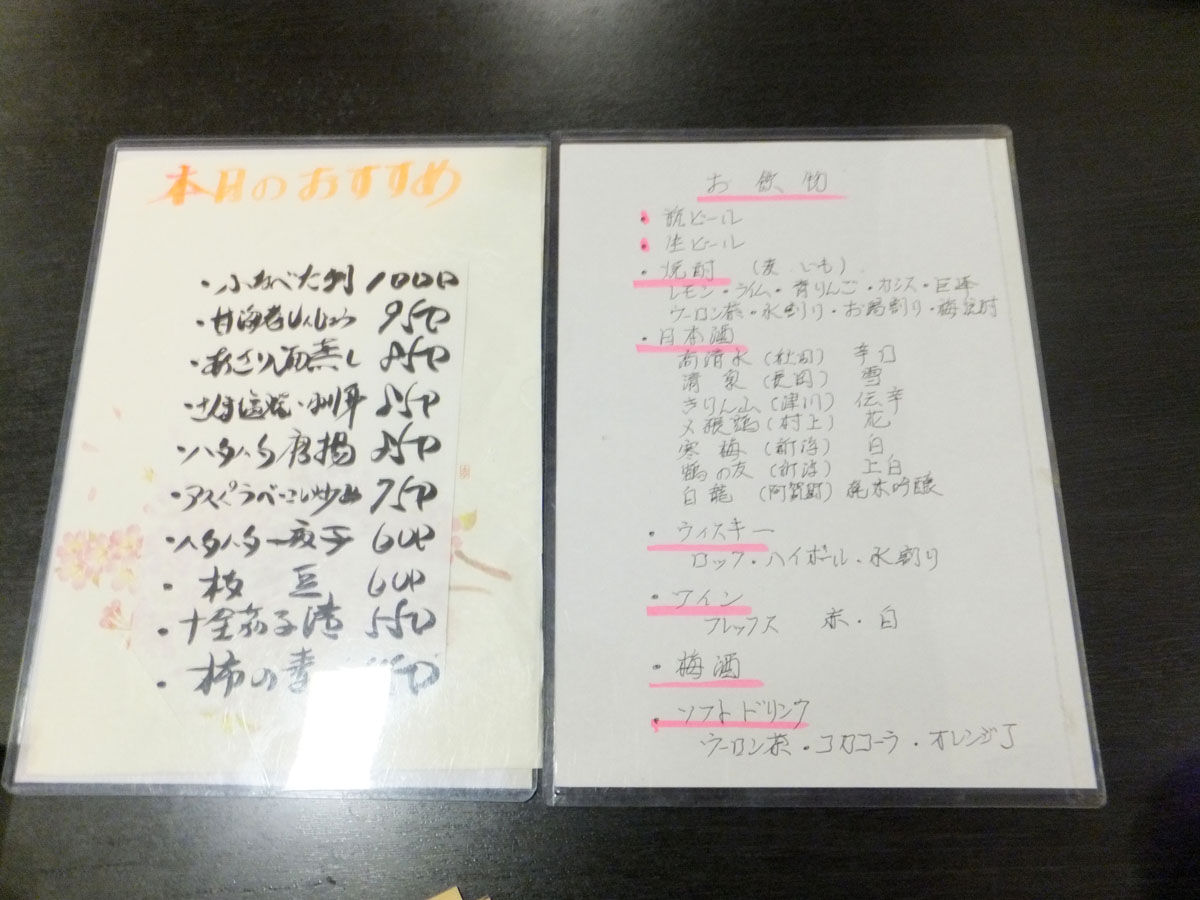 本日のおすすめ
・小なべ大判 1000
・甘海老しんじょう 950
・あさり酒蒸し 850
・さんま塩焼・刺身 850
・ハタハタ唐揚 850
・アスパラベーコン炒め 750
・ハタハタ一夜干 600
・枝豆 600
・十全茄子漬 550
・柿の
お飲物
・瓶ビール
・生ビール
・焼酎 (麦 いも)
レモン・ライム・青りんご・カシス・巨峰
ウーロン茶・水割り・お湯割り・梅
・日本酒
高清水(秋田) 辛口
清泉(長岡) 雪
きりん山(津川) 伝辛
〆張鶴(村上) 花
寒梅(新潟) 白
鶴の友(新潟) 上白
白龍(阿賀野) 純米吟醸
・ウィスキー
ロック・ハイボール・水割り
・ワイン
フレックス 赤・白
・梅酒
・ソフトドリンク
ウーロン茶・コカコーラ・オレンジJ